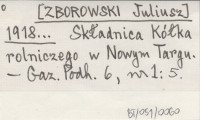 [ZBOROWSKI Juliusz]
1918... Składnica Kółka
rolniczego w Nowym Targu.
— Gaz. Podh. 6, nr 1: 5.